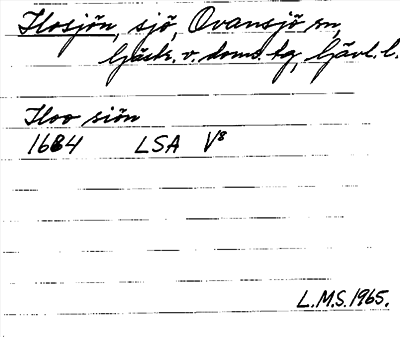 Ilosjön, sjö, Ovansjö sn,
Gästr. v. doms. tg, Gävl. l.
Iloo siön
1684 LSA V8
L.M.S. 1965.